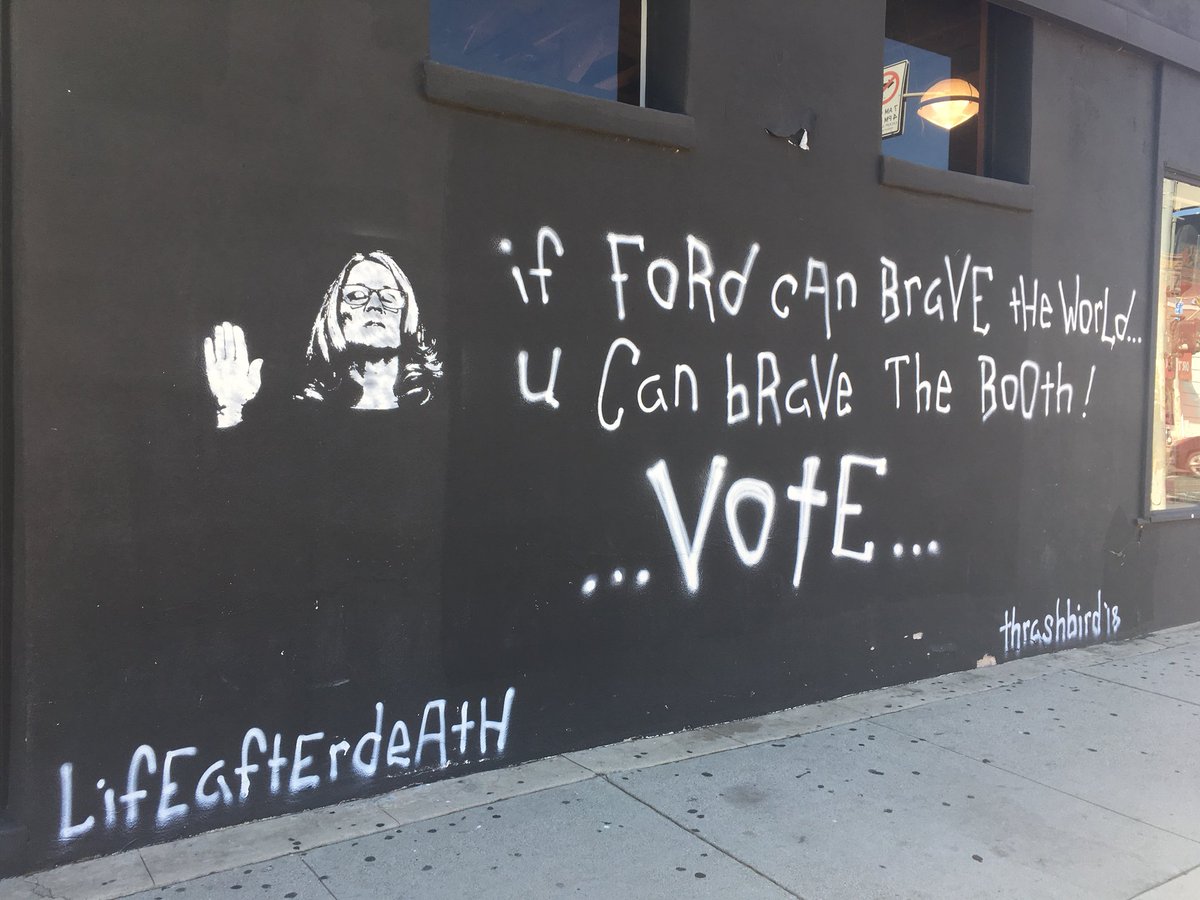 if FORd cAn BraVE tHE WorLd...
u Can bRaVe The BOOth!
...VOtE...
thrashbird'18
LifEaftErdeAtH